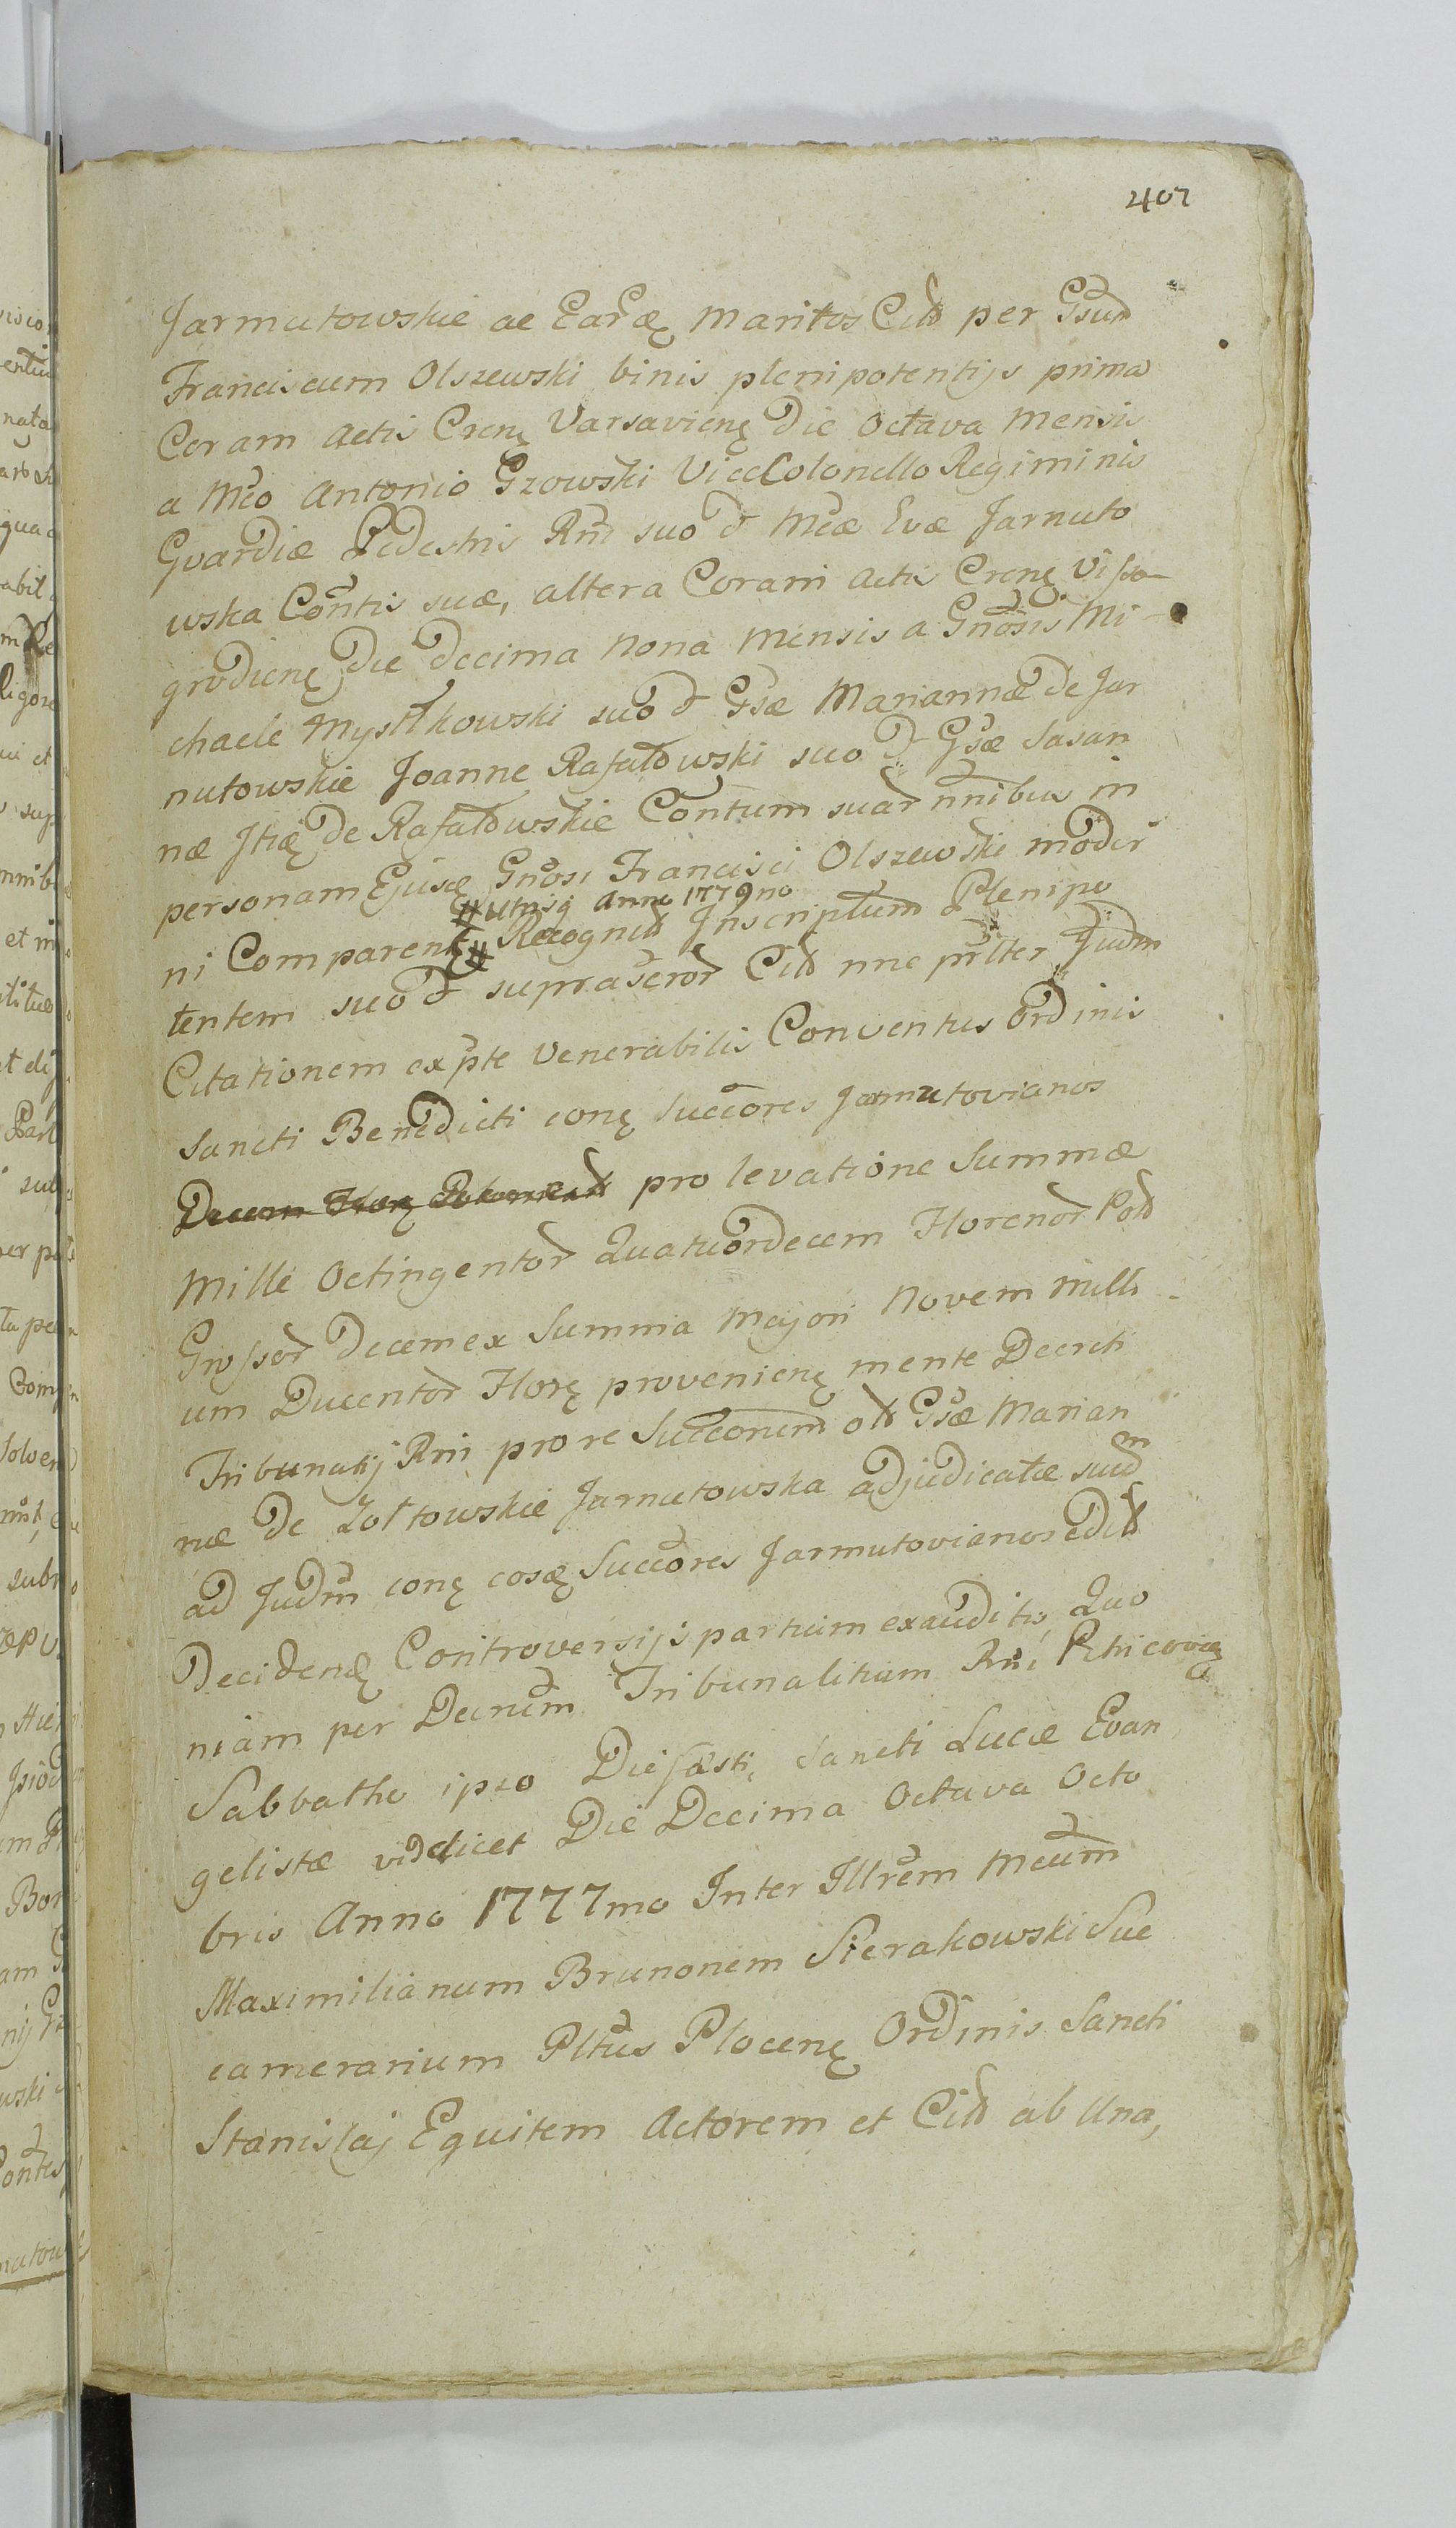 407
Jarmutowskie ac Earę maritos Citt per Gsum
Franciscum Olszewski binis plenipotentijs prima
Coram actis Crenę Varsavienę Die octava mensis
a Mco Antonio Gzowski ViceColonello Regiminis
Gvardiæ Pedestris Rni suo & Mcæ Evæ Jarnuto
wska Contis suæ, altera Coram actis Crenę Visso-
grodienę die decima nona mensis a Gnosis Mi-
chaele Mystkowski suo & Gsæ Mariannæ de Jar
nutowskie Joanne Rafałowski suo & Gsæ Susan
næ Itię de Rafałowskie Contum suar nnibus in
personam Ejusę Gnosi Francisci Olszewski moder
# Utriusq Anno 1779no
ni Comparentę # Recognitt Inscriptum Plenipo
tentem suo & suprascror Citt nne pnlter Judm
Citationem ex pte Venerabilis Conventus Ordinis
Sancti Benedicti conę Succores Jarmutovianos
Decem Florę pro levatione Summæ
Mille Octingentor Quatuordecem Florenor Poll
Grossor Decem ex Summa Majori Novem milli
um Ducentor Florę provenienę mente Decreti
Tribunalij Rni pro re Succorum olt Gsæ Marian
næ De Zołtowskie Jarnutowska adjudicatæ suum
ad Judm conę eosę Succores Jarmutovianos editt
Decidenę Controversijs partium exauditis, Quo
niam per Decrum Tribunalitium Rni Petricovię
Sabbatho ipso Die festi, Sancti Lucæ Evan
gelistæ videlicet Die Decima Octava Octo
bris Anno 1777mo Inter Illrem Mcum
Maximilianum Brunonem Sierakowski Suc
camerarium Pltus Plocenę Ordinis Sancti
Stanislaj Equitem Actorem et Citt ab Una,